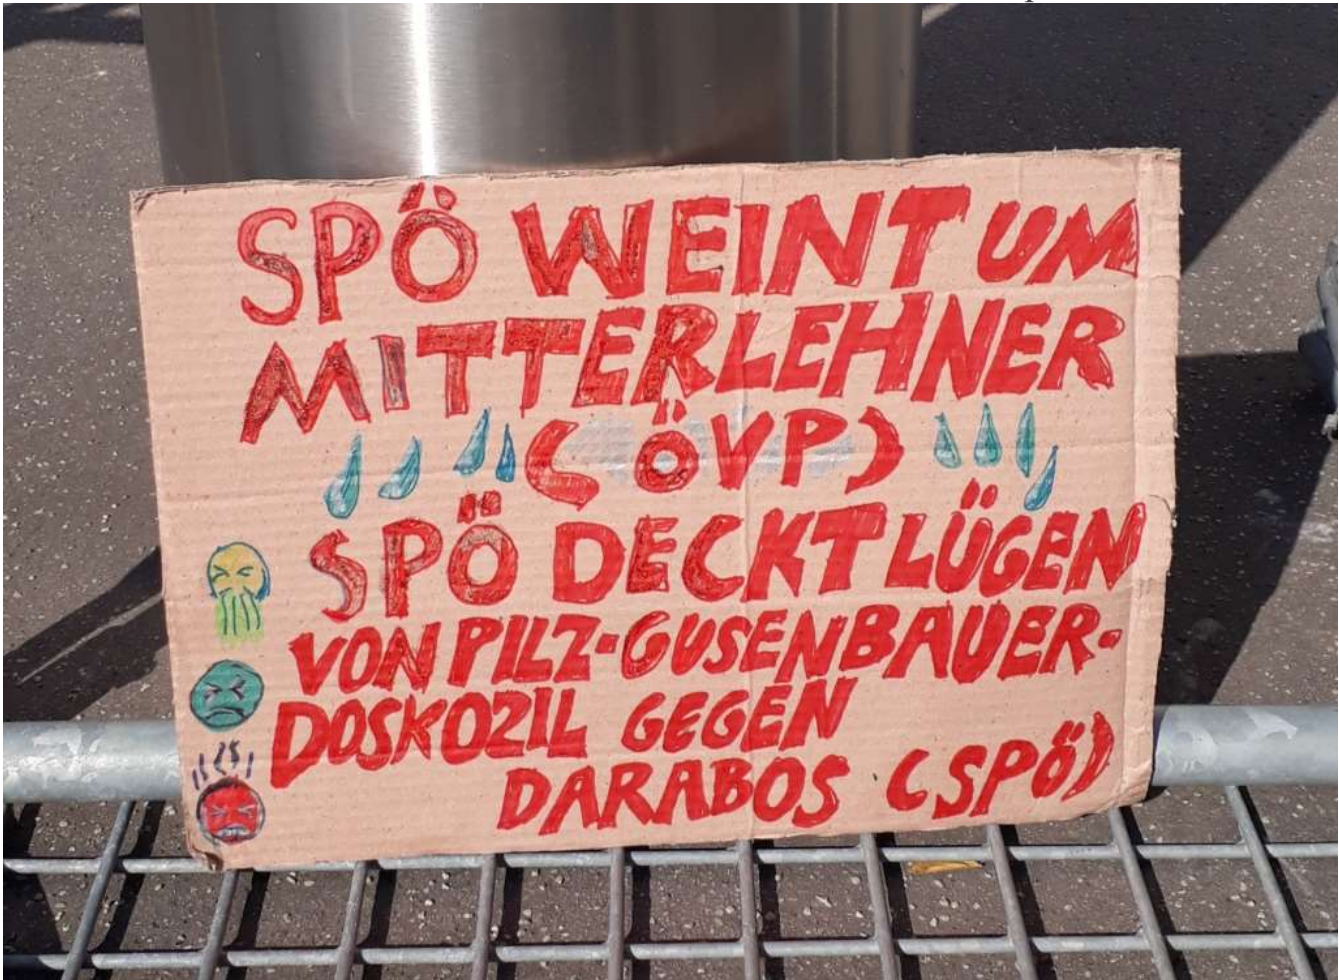 SPÖ WEINT UM
MITTERLEHNER
(ÖVP)
SPÖ DECKT LÜGEN
VON PILZ-GUSENBAUER-
DOSKOZIL GEGEN
DARABOS (SPÖ)